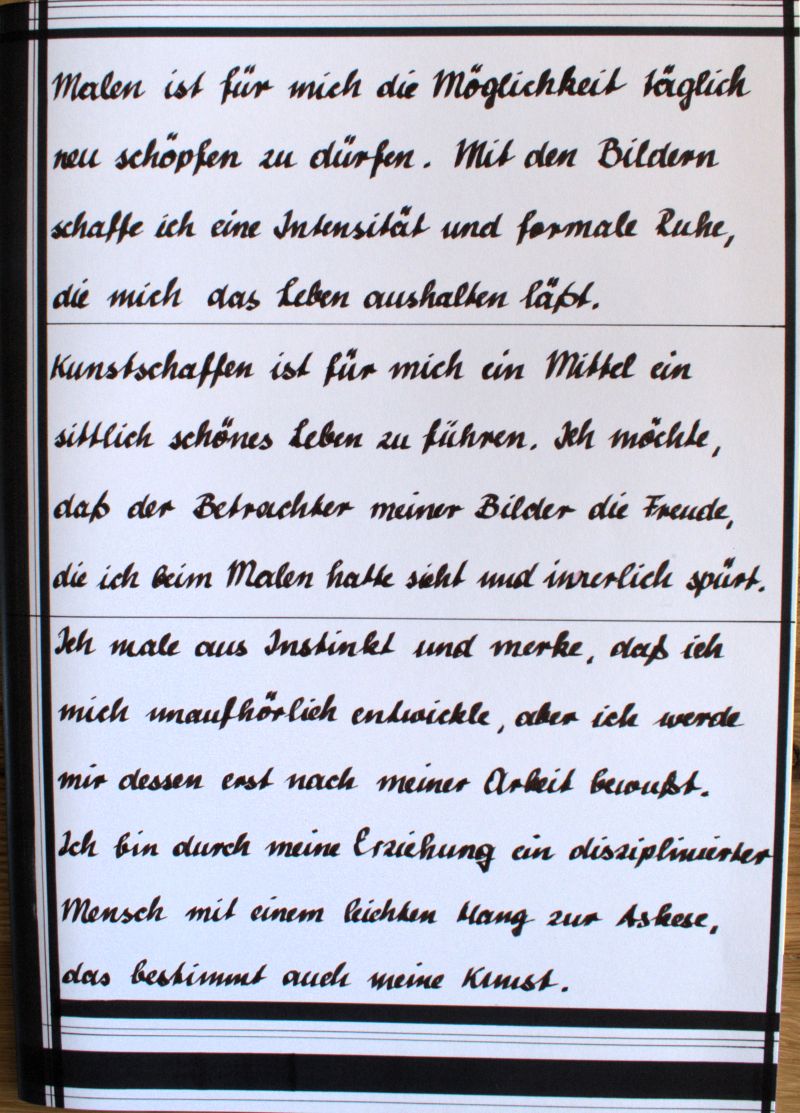 Malen ist für mich die Möglichkeit täglich
neu schöpfen zu dürfen. Mit den Bildern
schaffe ich eine Intensität und formale Ruhe,
die mich das Leben aushalten läßt.
Kunstschaffen ist für mich ein Mittel ein
sittlich schönes Leben zu führen. Ich möchte,
daß der Betrachter meiner Bilder die Freude,
die ich beim Malen hatte sieht und innerlich spürt.
Ich male aus Instinkt und merke, daß ich
mich unaufhörlich entwickle, aber ich werde
mir dessen erst nach meiner Arbeit bewußt.
Ich bin durch meine Erziehung ein disziplinierter
Mensch mit einem leichten Hang zur Askese,
das bestimmt auch meine Kunst.